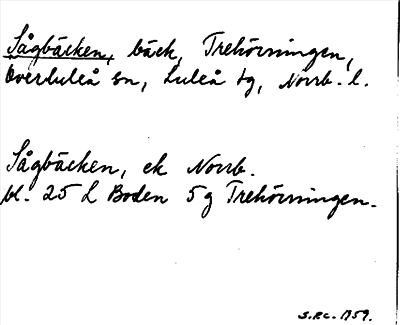 Sågbäcken, bäck, Trehörningen,
Överluleå sn, Luleå tg, Norrb. l.
Sågbäcken, ek Norrb.
bl. 25 L Boden 5 g Trehörningen.
1959.